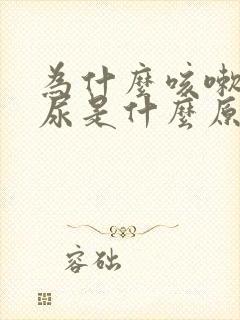 為什麼咳嗽
尿是什麼原
容础